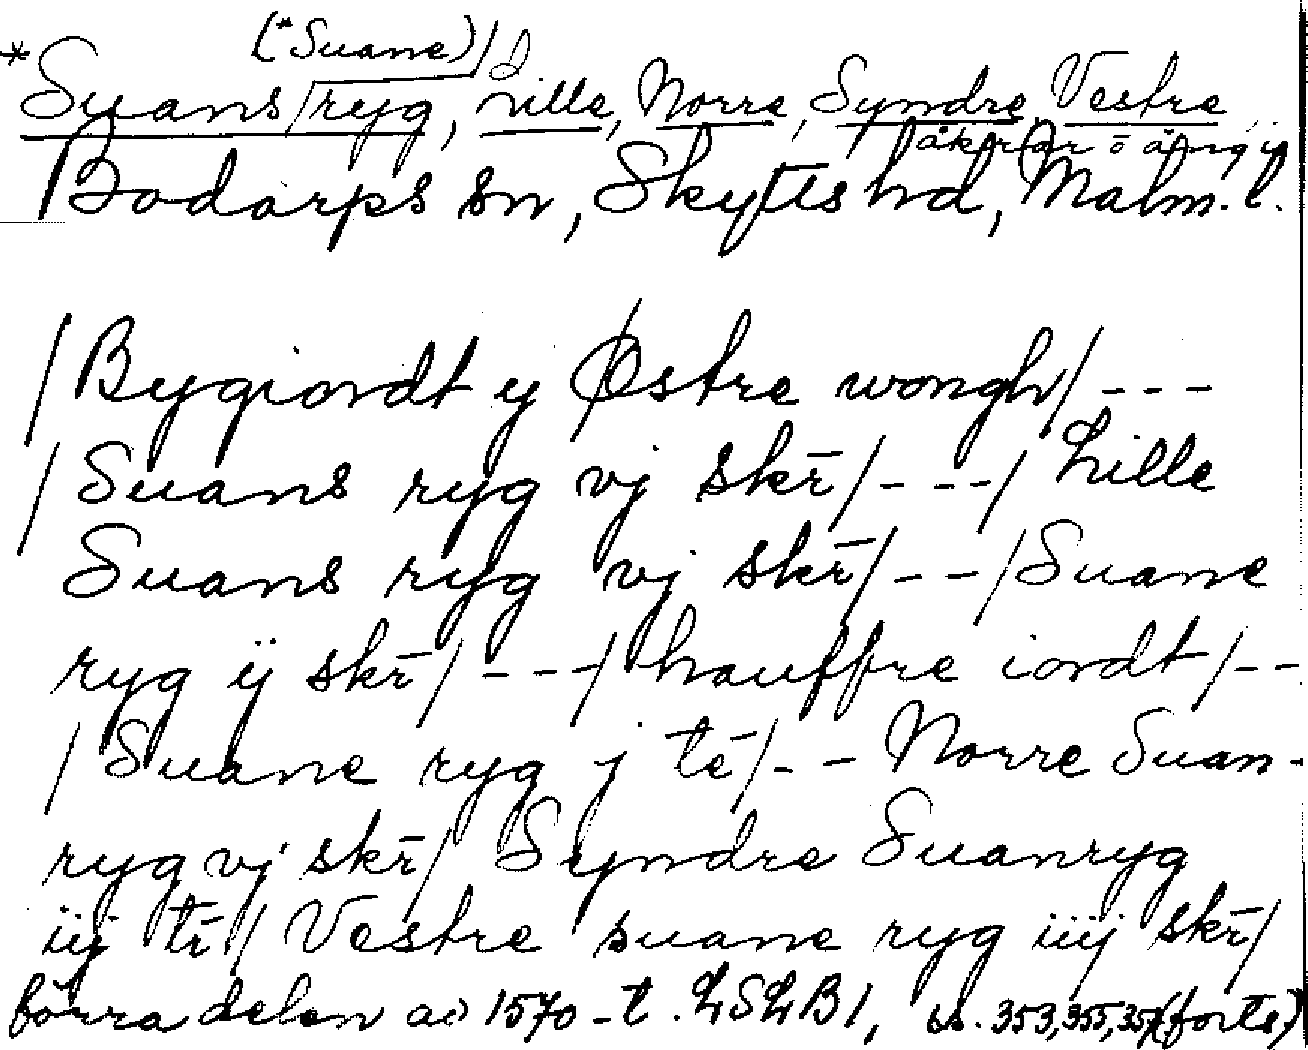 (*Suane)/
*Suans/ryg, Lille, Norre, Syndre, Vestre
åkrar o äng i
Bodarps sn, Skytts hd, Malm. l.
/Bygiordt y Østre wongh/ ---
/Suans ryg vj skr̄/---/ Lille
Suans ryg vj skr̄/---/Suane
ryg ij skr̄/---/hauffre iordt/--
/Suane ryg j tr̄/-- Norre Suan-
ryg vj skr̄/ Syndre Suanryg
iij tr̄/ Vestre suane ryg iiij skr̄/
förra delen av 1570-t. LSLB1, s. 353, 355, 357 (forts.)